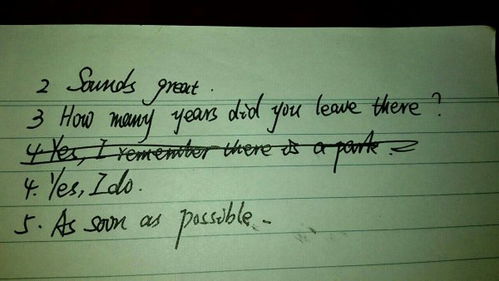 2 Sounds great.
3 How many years did you leave there?
4 Yes, I remember there is a park.
4. Yes, I do.
5. As soon as possible.